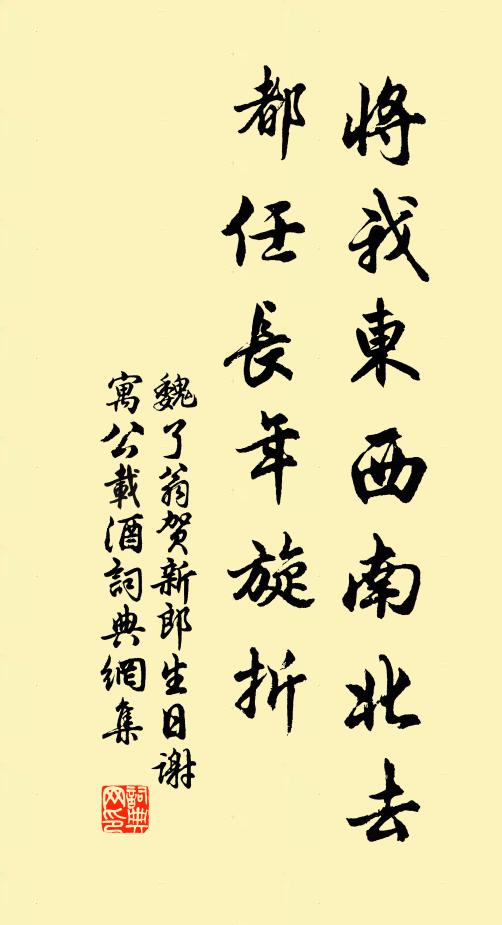 將我東西南北去
都任長年旋折
魏了翁賀新郎生日謝
寓公載酒詞典網集
詞典网印